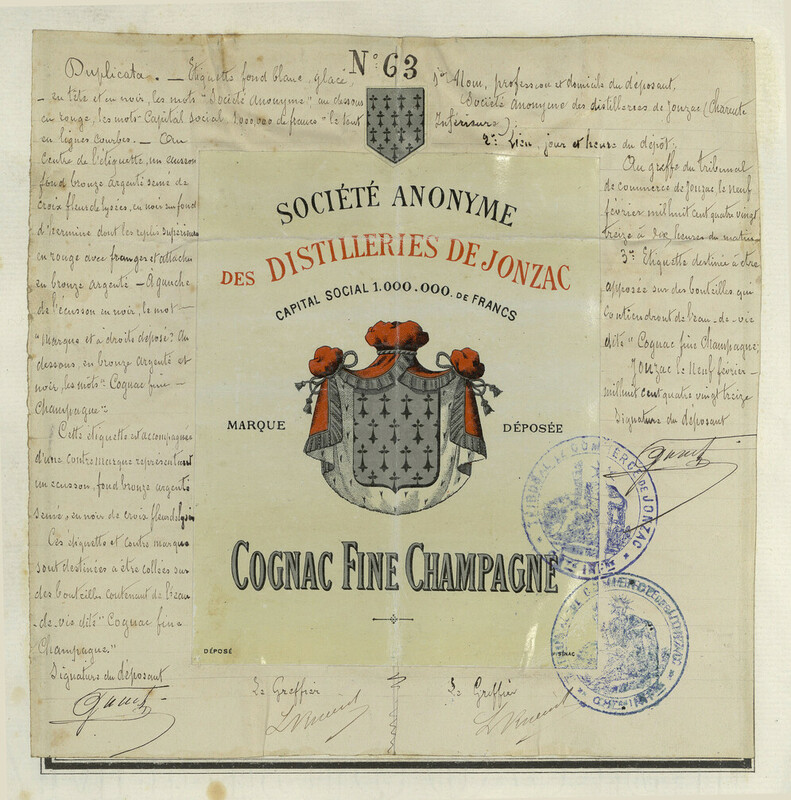 N° 63
Duplicata. — Etiquette fond blanc, glacé,
– en tête et en noir, les mots "Société Anonyme", au dessous
en rouge, les mots Capital social 1.000.000 de francs" le tout
en lignes courbes. — Au
centre de l'étiquette, un écusson
fond bronze argenté semé de
croix fleurs de lysées, en noir sur fond
d'hermine dont les replis supérieurs
en rouge avec franges et attaches
en bronze argenté – À gauche
de l'écusson en noir, le mot –
"Marque et à droite déposée". Au
dessous, en bronze argenté et
noir, les mots "Cognac fine –
Champagne"
Cette étiquette est accompagnée
d'une contremarque représentant
un écusson, fond bronze argenté
semé, en noir de croix fleurdelysées
Ces étiquette et contre marque
sont destinées à être collées sur
des bouteilles contenant de l'eau
-de-vie dite "Cognac fine
Champagne."
Signature du déposant
1° Nom, profession et domicile du déposant,
Société Anonyme des distilleries de Jonzac (Charente
Inférieure);
2° Lieu, jour et heure du dépôt:
Au greffe du tribunal
de commerce de Jonzac, le neuf
février mil huit cent quatre vingt
treize à dix heures du matin –
3° Etiquette destinée à être
apposée sur des bouteilles qui
contiendront de l'eau-de-vie
dite "Cognac fine Champagne,
Jonzac le neuf février –
mil huit cent quatre vingt treize
Signature du déposant
SOCIÉTÉ ANONYME
DES DISTILLERIES DE JONZAC
CAPITAL SOCIAL 1.000.000. DE FRANCS
MARQUE DÉPOSÉE
COGNAC FINE CHAMPAGNE
DÉPOSÉ
TRIBUNAL DE COMMERCE DE JONZAC
CHTE INFRE
TRIBUNAL DE COMMERCE DE JONZAC
CHTE INFRE
Le Greffier
Le Greffier